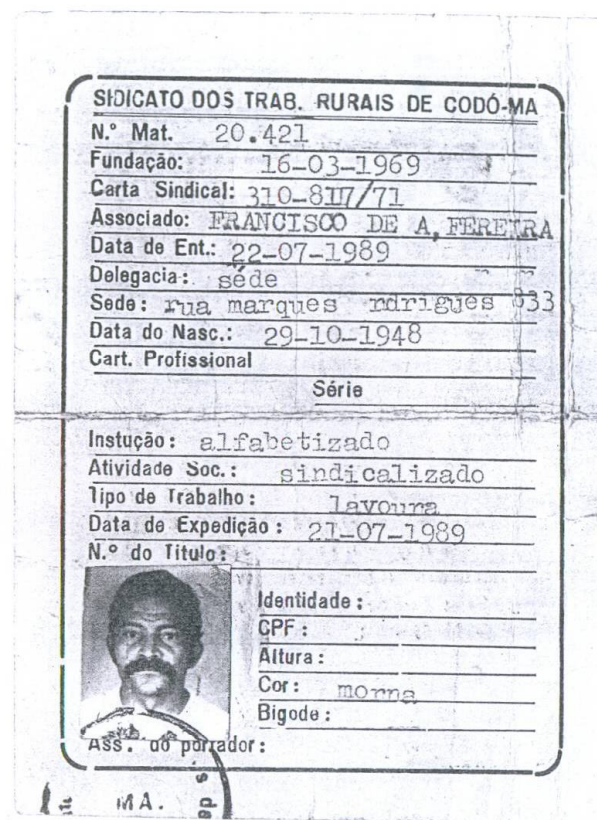 SIDICATO DOS TRAB. RURAIS DE CODÓ-MA
N.º Mat. 20.421
Fundação: 16-03-1969
Carta Sindical: 310-817/71
Associado: FRANCISCO DE A, FEREIRA
Data de Ent.: 22-07-1989
Delegacia: séde
Sede: rua marques rdrigues 833
Data do Nasc.: 29-10-1948
Cart. Profissional
Série
Instução: alfabetizado
Atividade Soc.: sindicalizado
Tipo de Trabalho: lavoura
Data de Expedição: 21-07-1989
N.º do Titulo:
Identidade:
CPF:
Altura:
Cor: morna
Bigode:
Ass. do portador:
MA.